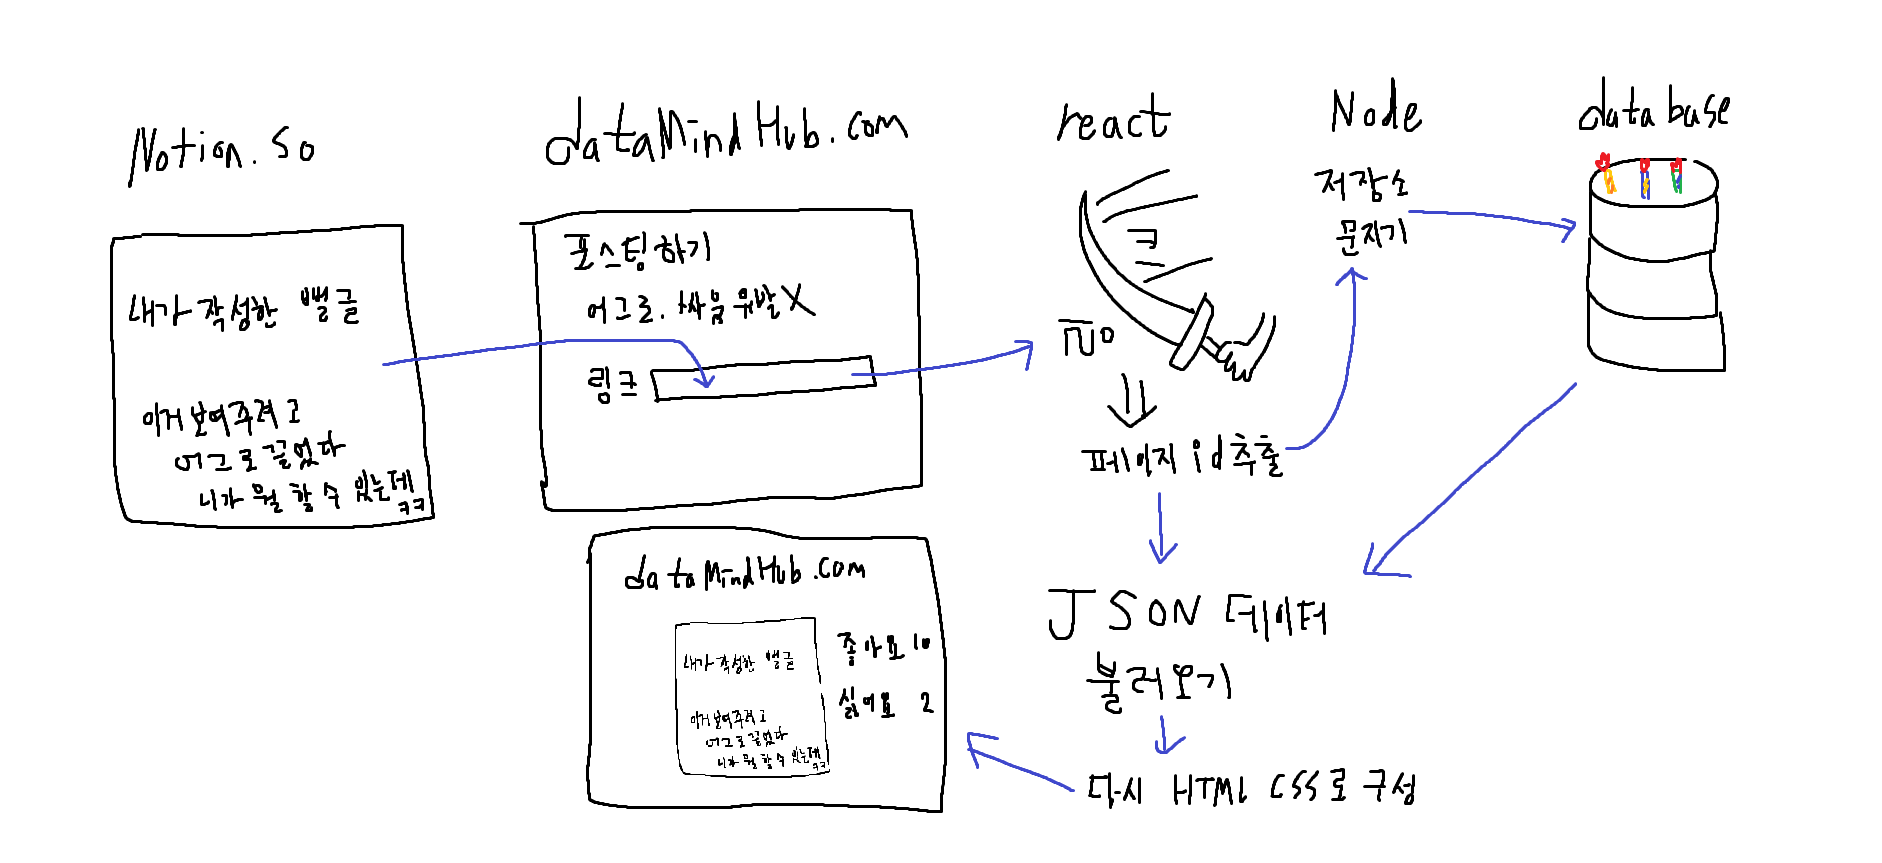 Notion.so
내가 작성한 뻘글
이거 보여주려고
어그로 끌었다
니가 뭘 할 수 있는데
ㅋㅋ
dataMindHub.com
포스팅하기
어그로.싸움 유발X
링크
react
Node
저장소
문지기
database
페이지 id 추출
JSON 데이터
불러오기
다시 HTML CSS로 구성
dataMindHub.com
내가 작성한 뻘글
이거 보여주려고
어그로 끌었다
니가 뭘 할 수 있는데
ㅋㅋ
좋아요 10
싫어요 2